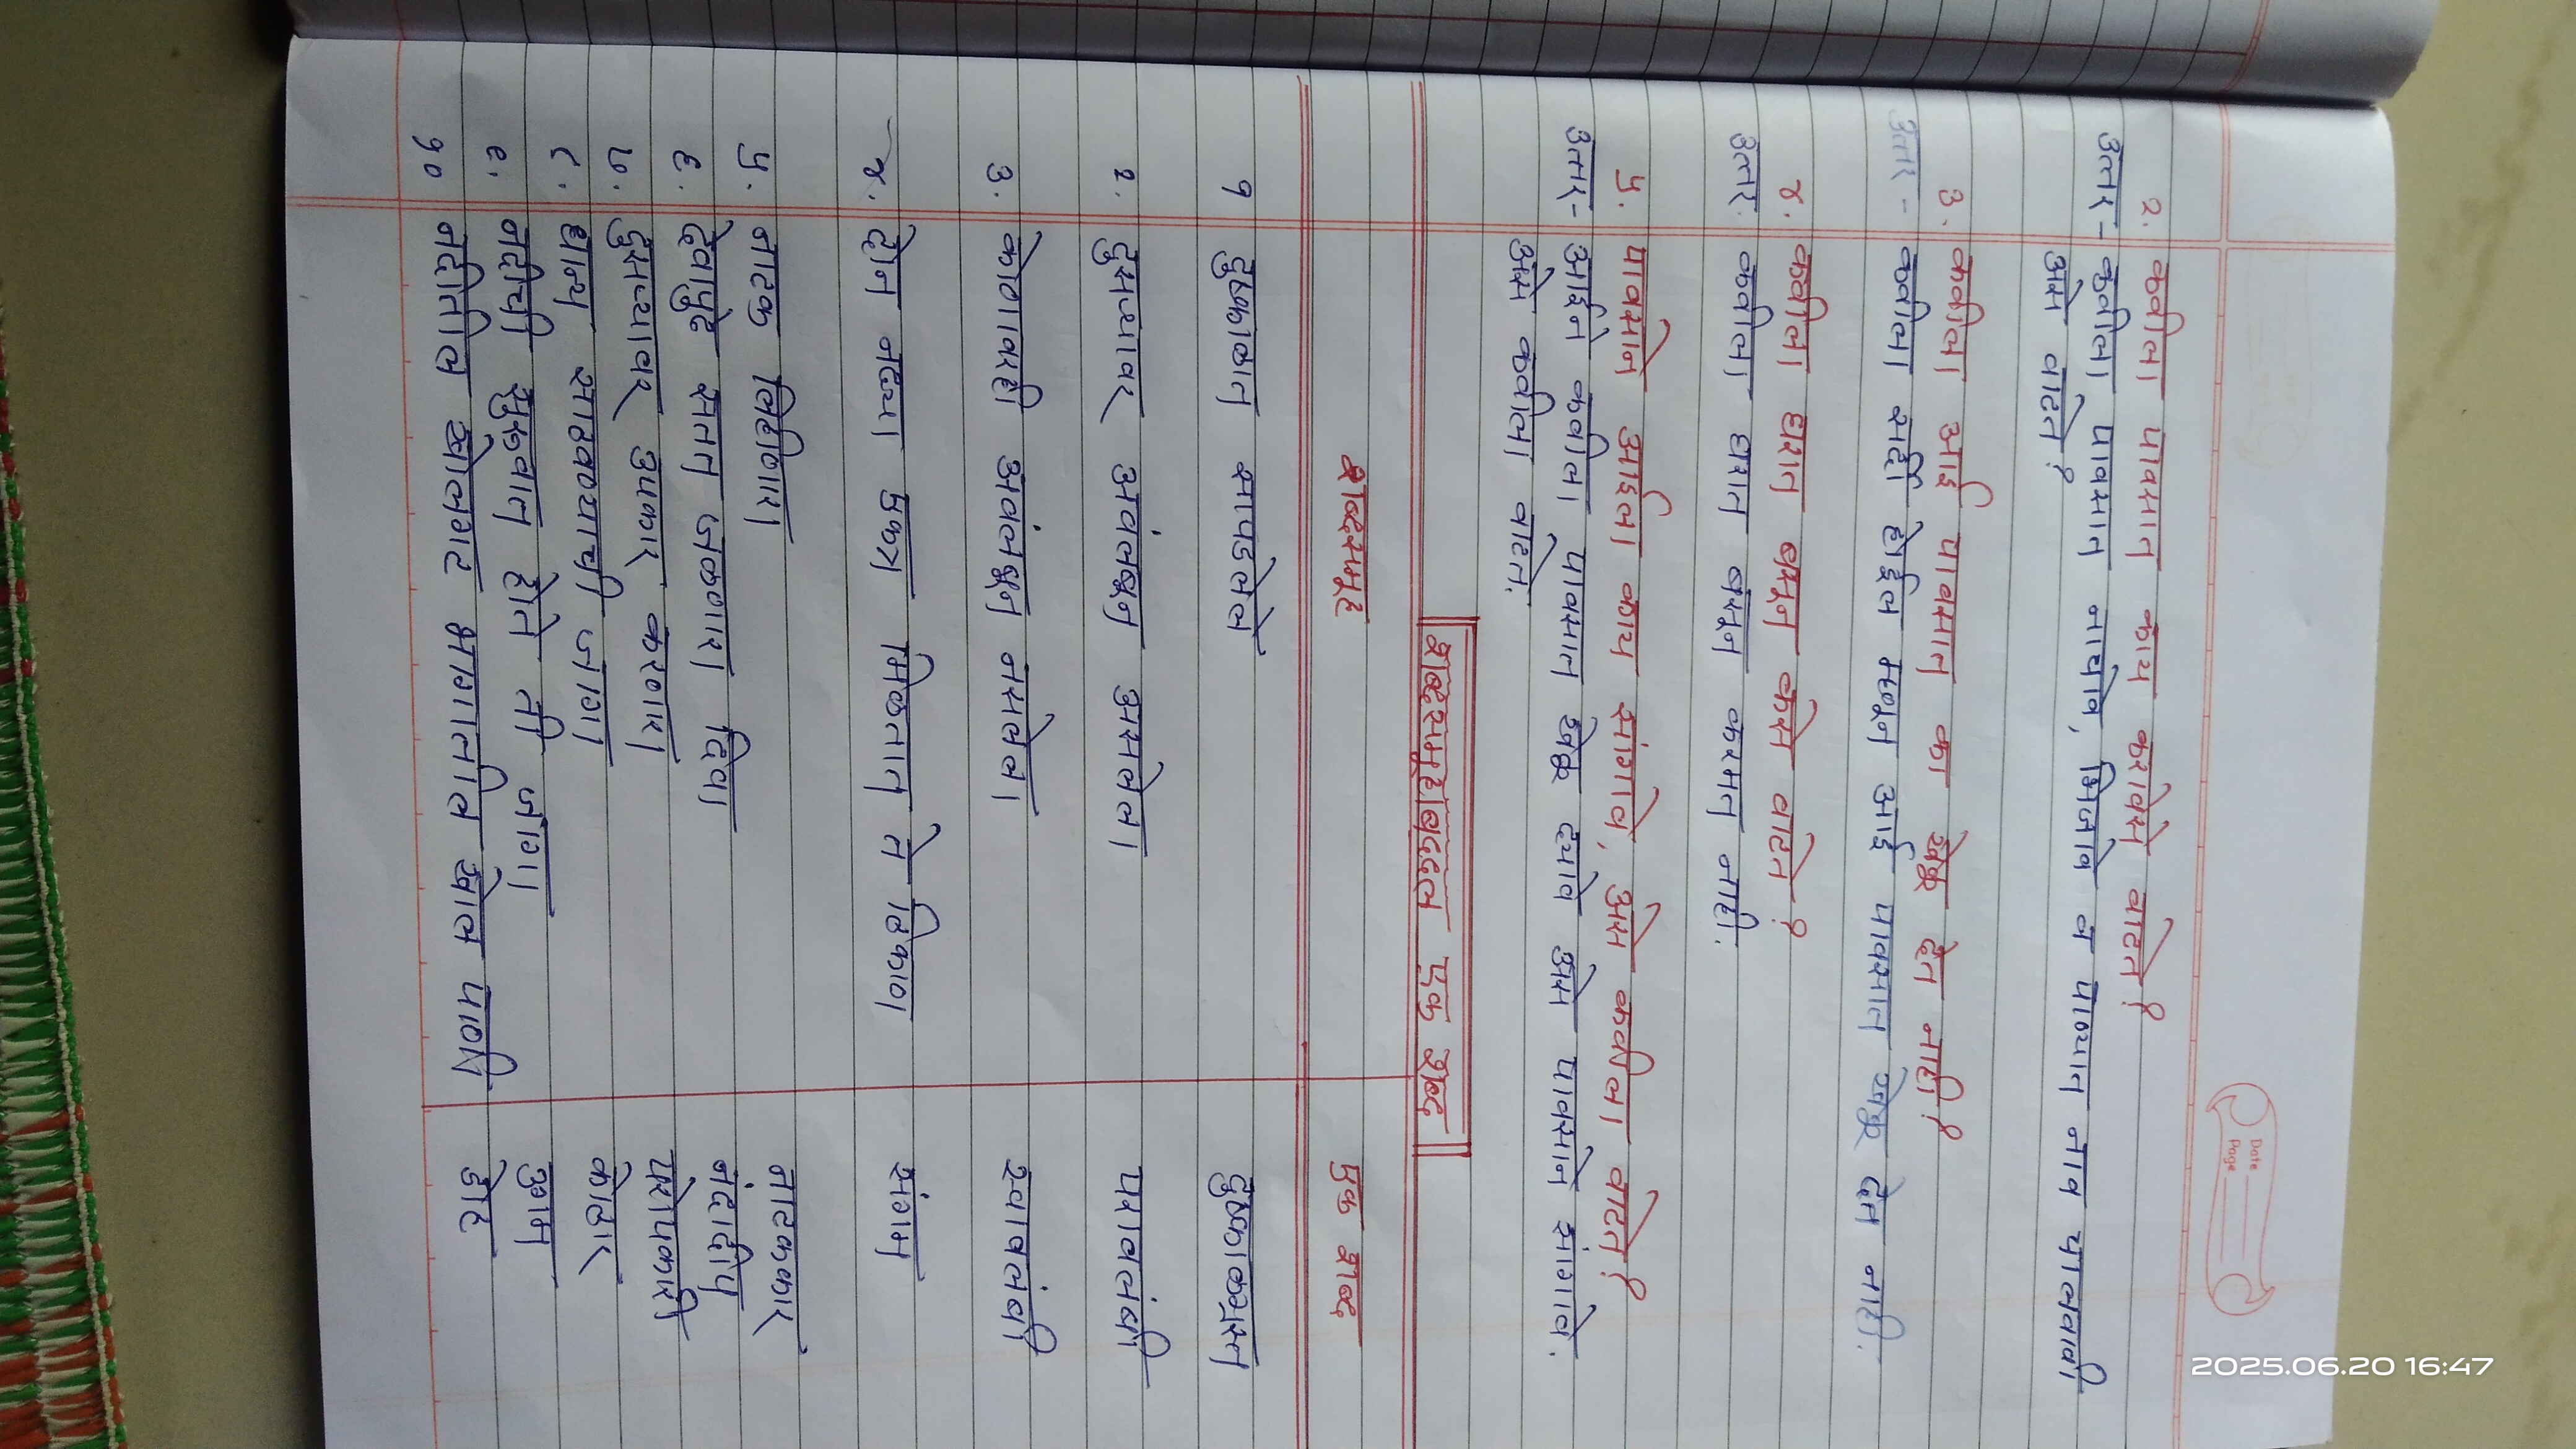 Date
Page
२. कवीला पावसात काय करावेसे वाटते?
उत्तर - कवीला पावसात नाचावे, भिजावे व पाण्यात नाव चालवावी
असे वाटते?
३. कवीला आई पावसात का खेळू देत नाही?
उत्तर - कवीला सर्दी होईल म्हणून आई पावसात खेळू देत नाही.
४. कवीला घरात बसून कसे वाटते?
उत्तर. कवीला घरात बसून करमत नाही.
५. पावसाने आईला काय सांगावे, असे कवीला वाटते?
उत्तर- आईने कवीला पावसात खेळू द्यावे असे पावसाने सांगावे.
असे कवीला वाटते.
शब्दसमूहाबद्दल एक शब्द
शब्दसमूह एक शब्द
१ दुष्काळात सापडलेले दुष्काळग्रस्त
२. दुसऱ्यावर अवलंबून असलेला परावलंबी
३. कोणावरही अवलंबून नसलेला स्वावलंबी
४. दोन नद्या एकत्र मिळतात ते ठिकाण संगम
५. नाटक लिहिणारा नाटककार
६. देवापुढे सतत जळणारा दिवा नंदादीप
७. दुसऱ्यावर उपकार करणारा परोपकारी
८. धान्य साठवण्याची जागा कोठार
९. नदीची सुरुवात होते ती जागा उगम
१० नदीतील खोलगट भागातील खोल पाणी डोह
2025.06.20 16:47